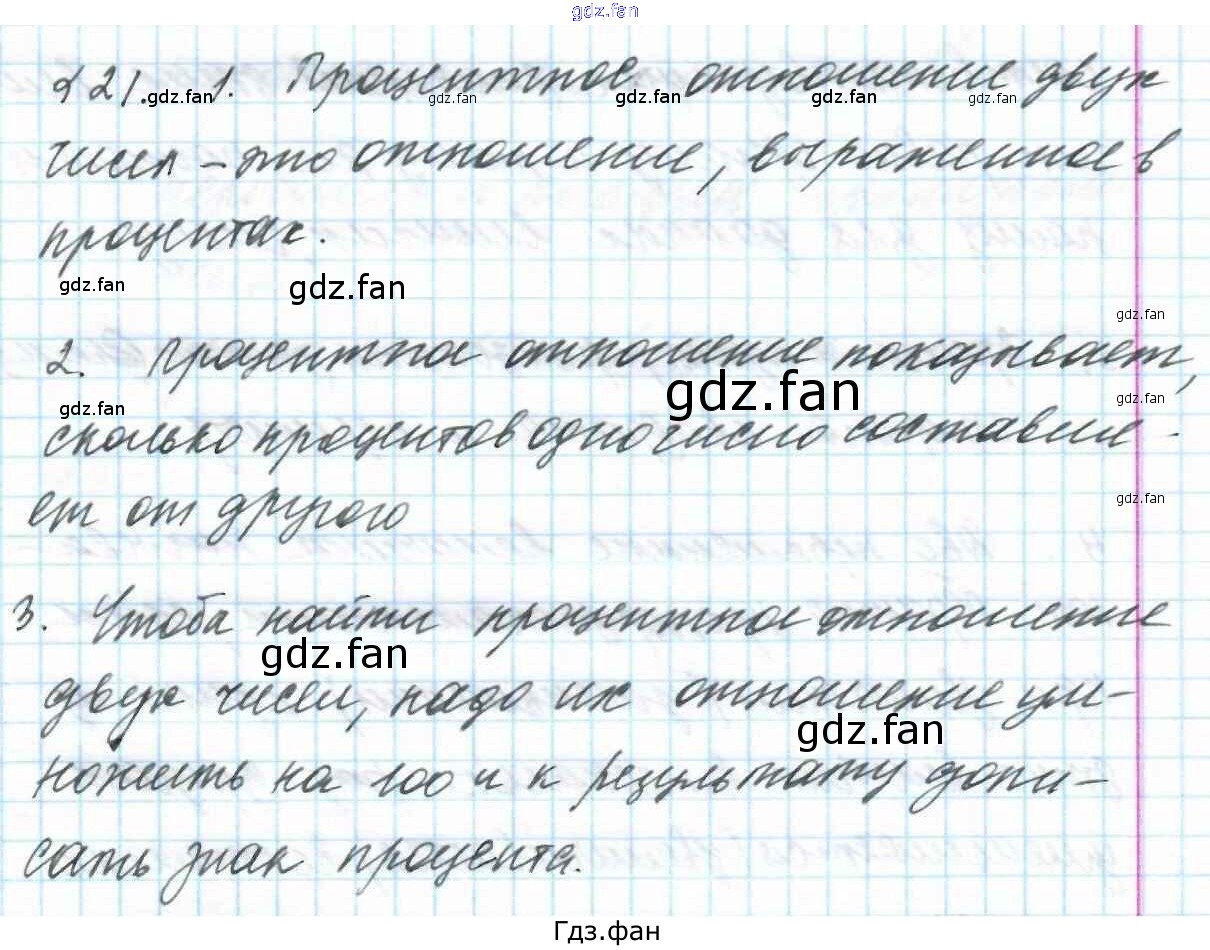 gdz.fan
§21. 1. Процентное отношение двух
gdz.fan gdz.fan gdz.fan gdz.fan
чисел – это отношение, выраженное в
процентах.
gdz.fan gdz.fan
gdz.fan
2. Процентное отношение показывает,
gdz.fan gdz.fan gdz.fan
сколько процентов одно число составля-
ет от другого
gdz.fan
3. Чтоба найти процентное отношение
gdz.fan
двух чисел, надо их отношение ум-
gdz.fan
ножить на 100 и к результату допи-
сать знак процента.
Гдз.фан